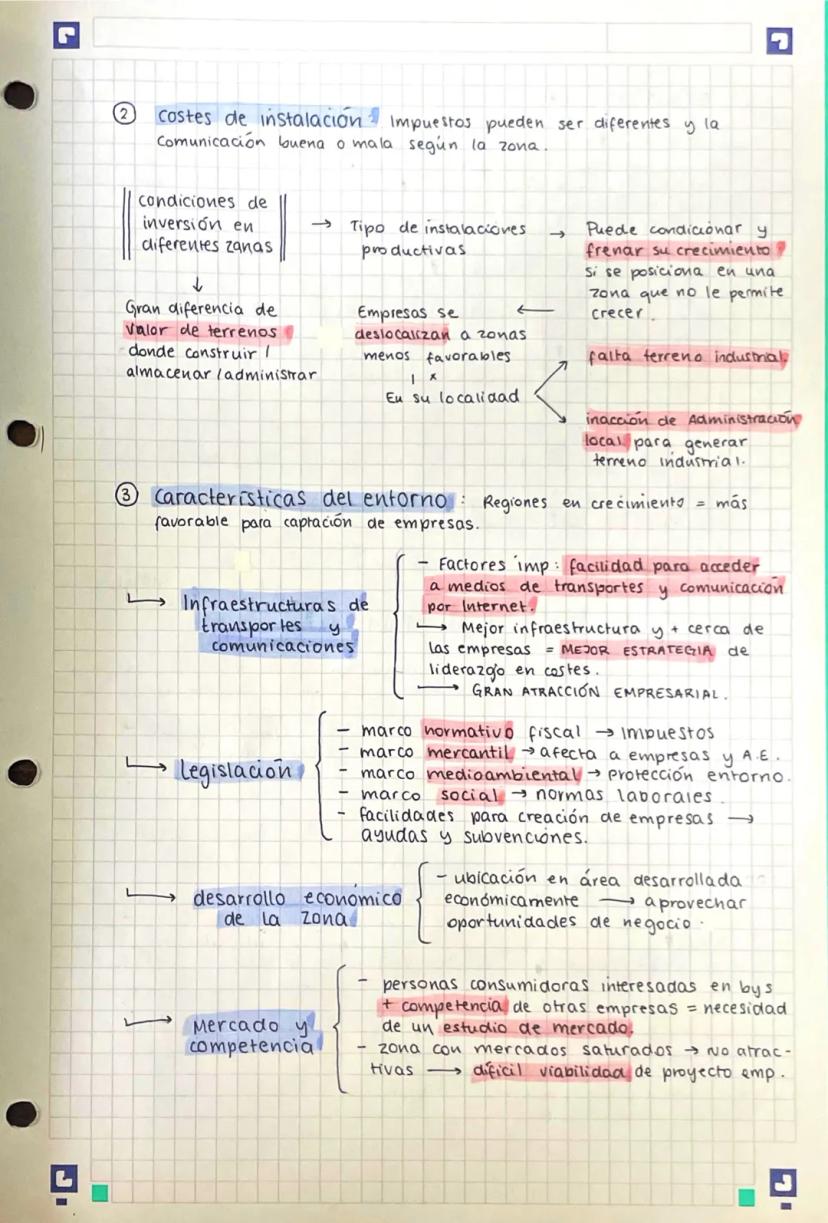 ② Costes de instalación: Impuestos pueden ser diferentes y la
Comunicación buena o mala según la zona.
condiciones de
inversión en
diferentes zonas
→ Tipo de instalaciones
productivas
→ Puede condicionar y
frenar su crecimiento
si se posiciona en una
zona que no le permite
crecer.
↓
Gran diferencia de
valor de terrenos
donde construir /
almacenar / administrar
←
Empresas se
deslocalizan a zonas
menos favorables
En su localidad
falta terreno industrial.
inacción de Administración
local para generar
terreno industrial.
③ Características del entorno: Regiones en crecimiento = más
favorable para captación de empresas.
Infraestructuras de
transportes y
comunicaciones
- Factores imp: facilidad para acceder
a medios de transportes y comunicación
por Internet.
→ Mejor infraestructura y + cerca de
las empresas = MEJOR ESTRATEGIA de
liderazgo en costes.
→ GRAN ATRACCIÓN EMPRESARIAL.
→ legislación
- marco normativo fiscal → Impuestos
- marco mercantil → afecta a empresas y A.E.
- marco medioambiental → Protección entorno.
- marco social → normas laborales.
- facilidades para creación de empresas →
ayudas y subvenciones.
→ desarrollo económico
de la zona
- ubicación en área desarrollada
económicamente → aprovechar
oportunidades de negocio.
→ Mercado y
competencia
- personas consumidoras interesadas en bys
+ competencia de otras empresas = necesidad
de un estudio de mercado.
- zona con mercados saturados → No atrac-
tivas → difícil viabilidad de proyecto emp.